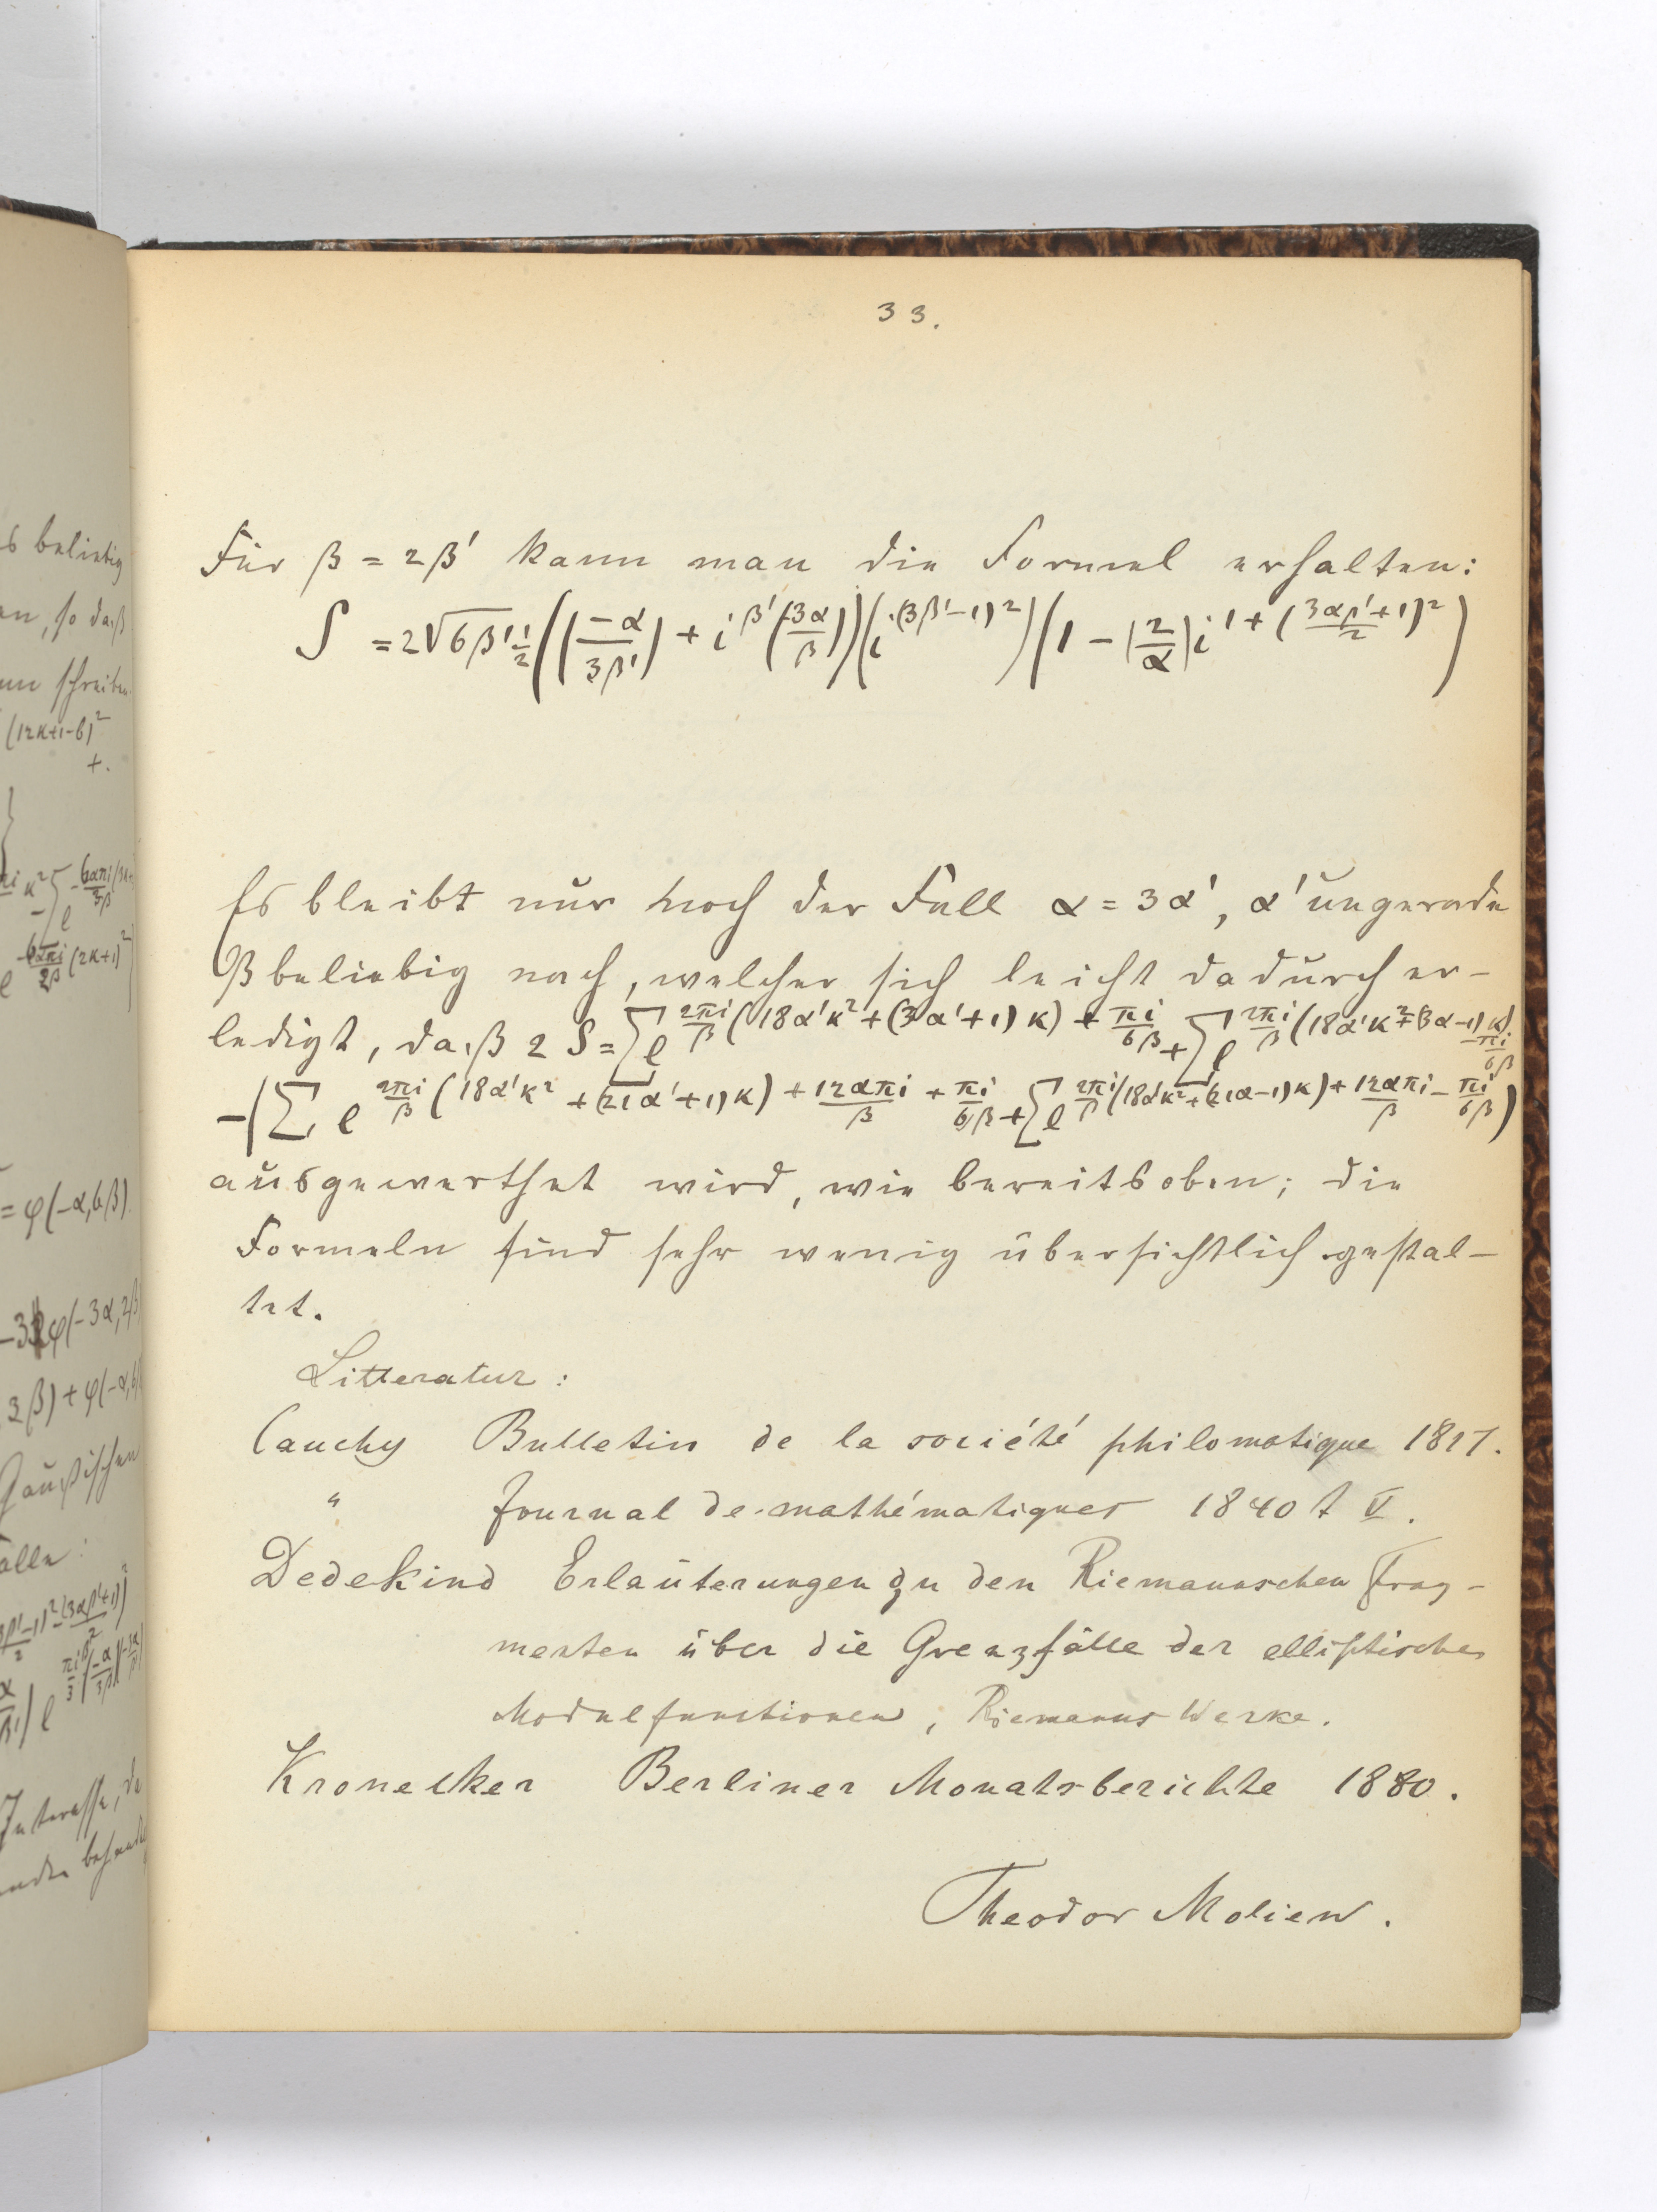 33.
Für β = 2β' kann man die Formel erhalten:
S = 2√6β' ½ ((−α/3β') + i^β' (−3α/β)) (i^(3β'−1)²) (1 − (2/α) i^1 + (3αβ'+1/2)²)
Es bleibt nur noch der Fall α = 3α', α' ungerade
β beliebig nach, welcher sich leicht dadurch er-
ledigt, daß 2 S = Σ e^2πi/β (18α'κ² + (3α'+1) κ) + πi/6β + Σ e^2πi/β (18α'κ² + (3α−1) κ) − πi/6β
−(Σ e^2πi/β (18α'κ² + (21α'+1) κ) + 12απi/β + πi/6β + Σ e^2πi/β (18α'κ² + (21α−1) κ) + 12απi/β − πi/6β)
ausgewerthet wird, wie bereits oben; die
Formeln sind sehr wenig übersichtlich gestal-
tet.
Litteratur:
Cauchy Bulletin de la société philomatique 1817.
" Journal de mathématiques 1840 t V.
Dedekind Erläuterungen zu den Riemannschen Frag-
menten über die Grenzfälle der elliptischen
Modulfunctionen, Riemanns Werke.
Kronecker Berliner Monatsberichte 1880.
Theodor Molien.